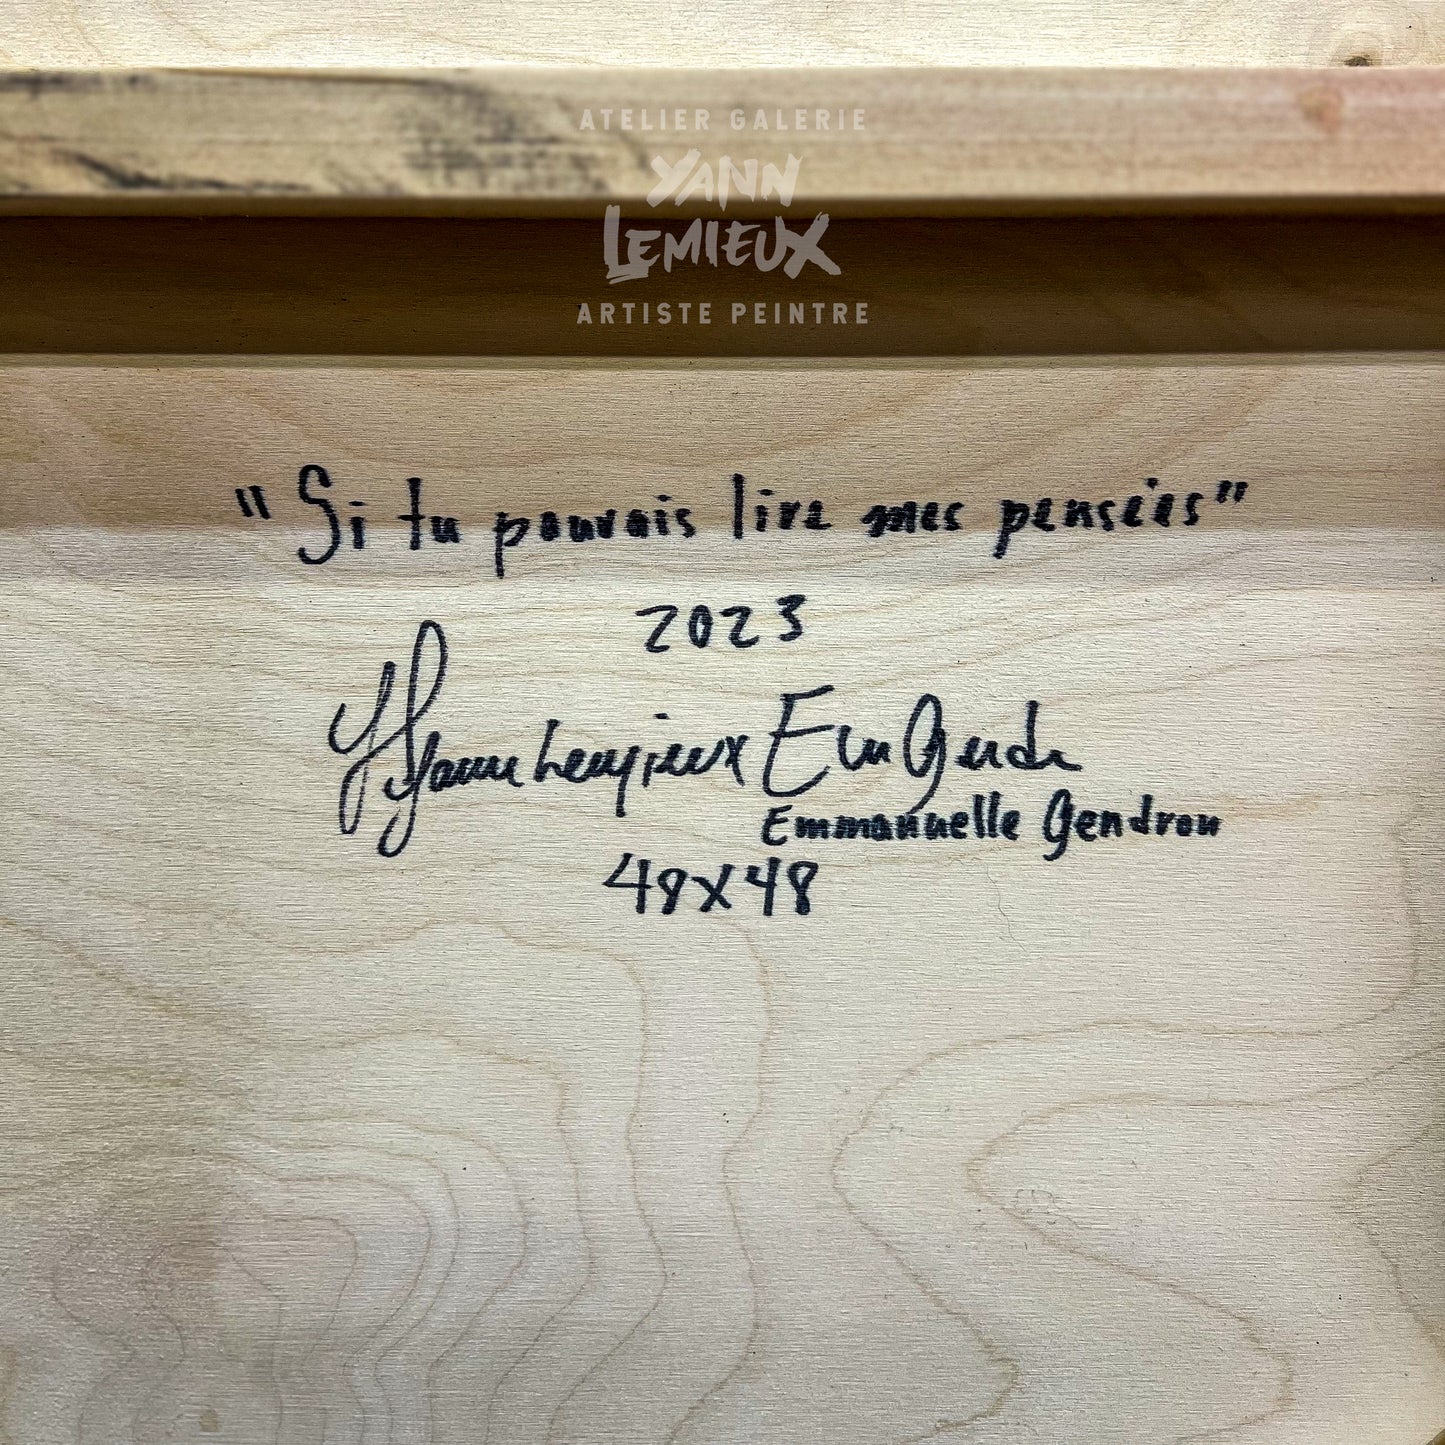 ATELIER GALERIE
YANN
LEMIEUX
ARTISTE PEINTRE
"Si tu pouvais lire mes pensées"
2023
Yann Lemieux Em Gend
Emmanuelle Gendron
48X48